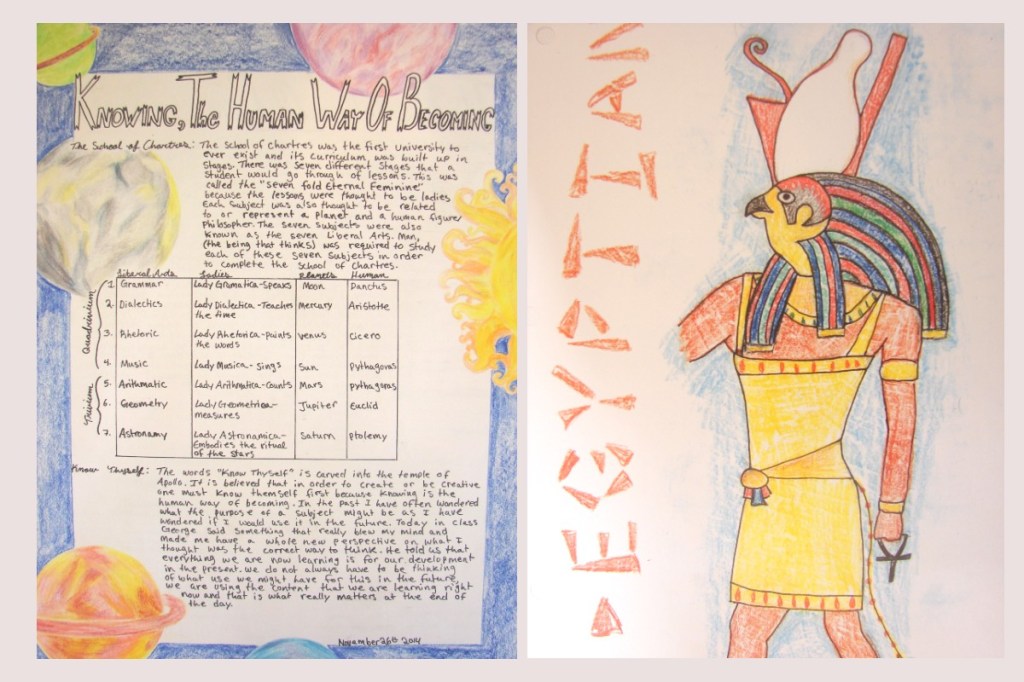 KNOWING, THE HUMAN WAY OF BECOMING
The School of Chartres: The School of Chartres was the first University to
ever exist and its curriculum was built up in
stages. There was seven different stages that a
student would go through of lessons. This was
called the "Seven fold Eternal Feminine"
because the lessons were thought to be ladies
Each subject was also thought to be related
to or represent a planet and a human figure/
Philosopher. The seven subjects were also
known as the seven Liberal Arts. Man,
(the being that thinks) was required to study
each of these seven subjects in order
to complete the School of Chartres.
Liberal Arts Ladies Planets Human
Quadrivium
1. Grammar Lady Gramatica-Speaks Moon Danctus
2. Dialectics Lady Dialectica-Teaches Mercury Aristotte
the time
3. Rhetoric Lady Rhetorica-paints Venus Cicero
the words
4. Music Lady Musica-Sings Sun Pythagoras
Trivium
5. Arithmatic Lady Arithmatica-Counts Mars Pythagoras
6. Geometry Lady Greometrica- Jupiter Euclid
measures
7. Astronamy Lady Astronamica- Saturn Ptolemy
Embodies the ritual
of the stars
Know Thyself: The words "Know Thyself" is carved into the temple of
Apollo. It is believed that in order to create or be creative
one must know themself first because knowing is the
human way of becoming. In the past I have often wondered
what the purpose of a subject might be as I have
wondered if I would use it in the future. Today in class
George said something that really blew my mind and
made me have a whole new perspective on what I
thought was the correct way to think. He told us that
everything we are now learning is for our development
in the present. We do not always have to be thinking
of what use we might have for this in the future,
we are using the content that we are learning right
now and that is what really matters at the end of
the day.
November 26th 2014
EGYPTIAN